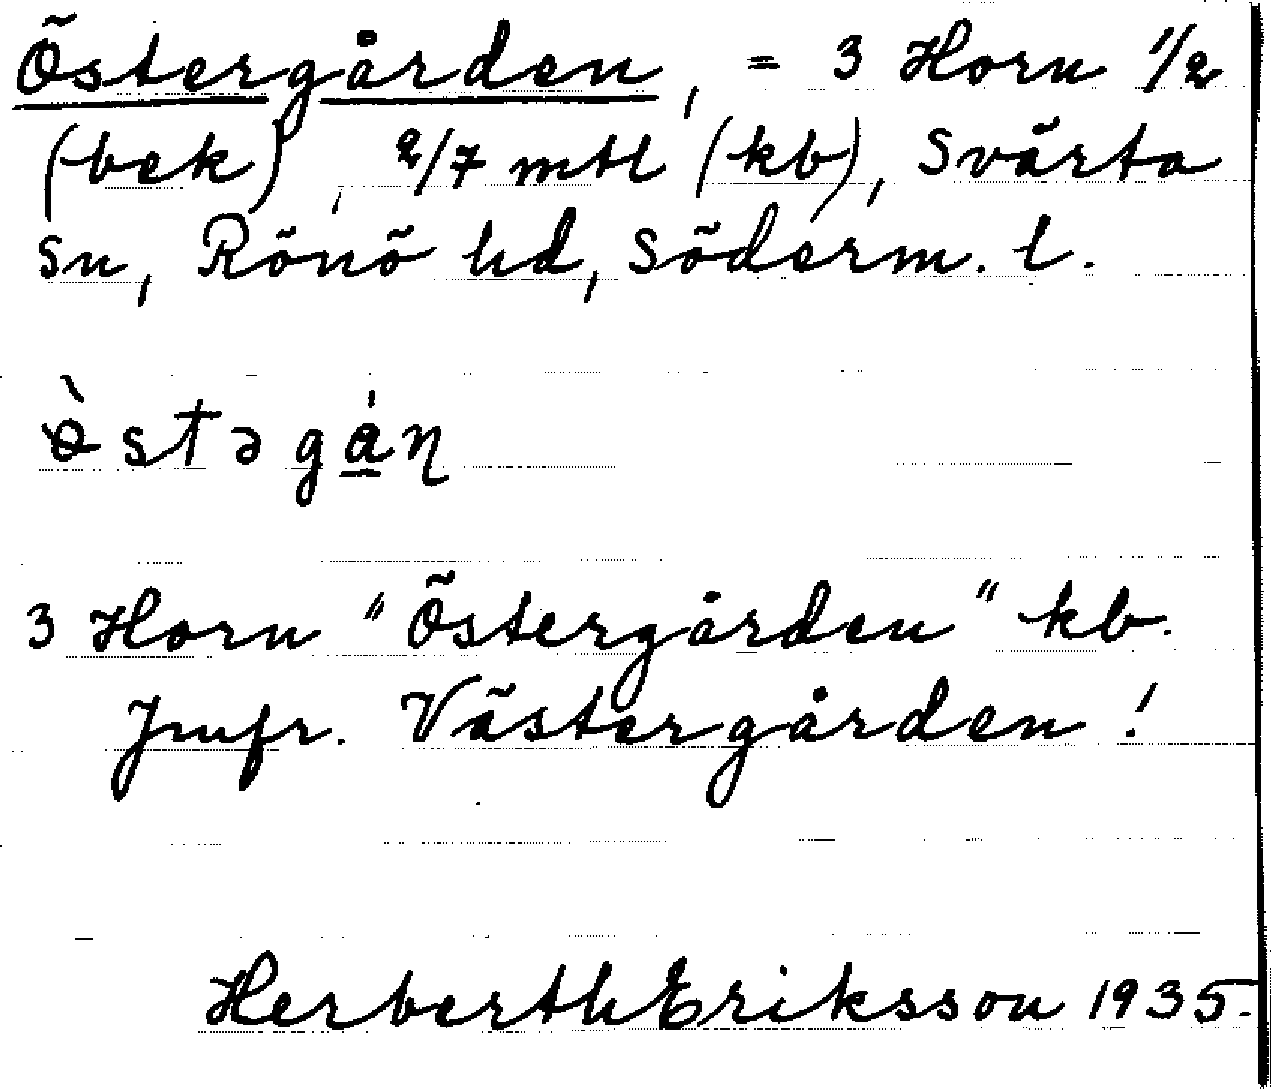 Östergården, = 3 Horn 1/2
(bek), 2/7 mtl (kb), Svärta
sn, Rönö hd, Söderm. l.
ö̀stəgá̱ɳ
3 Horn "Östergården" kb.
Jmfr. Västergården!
Herberth Eriksson 1935.